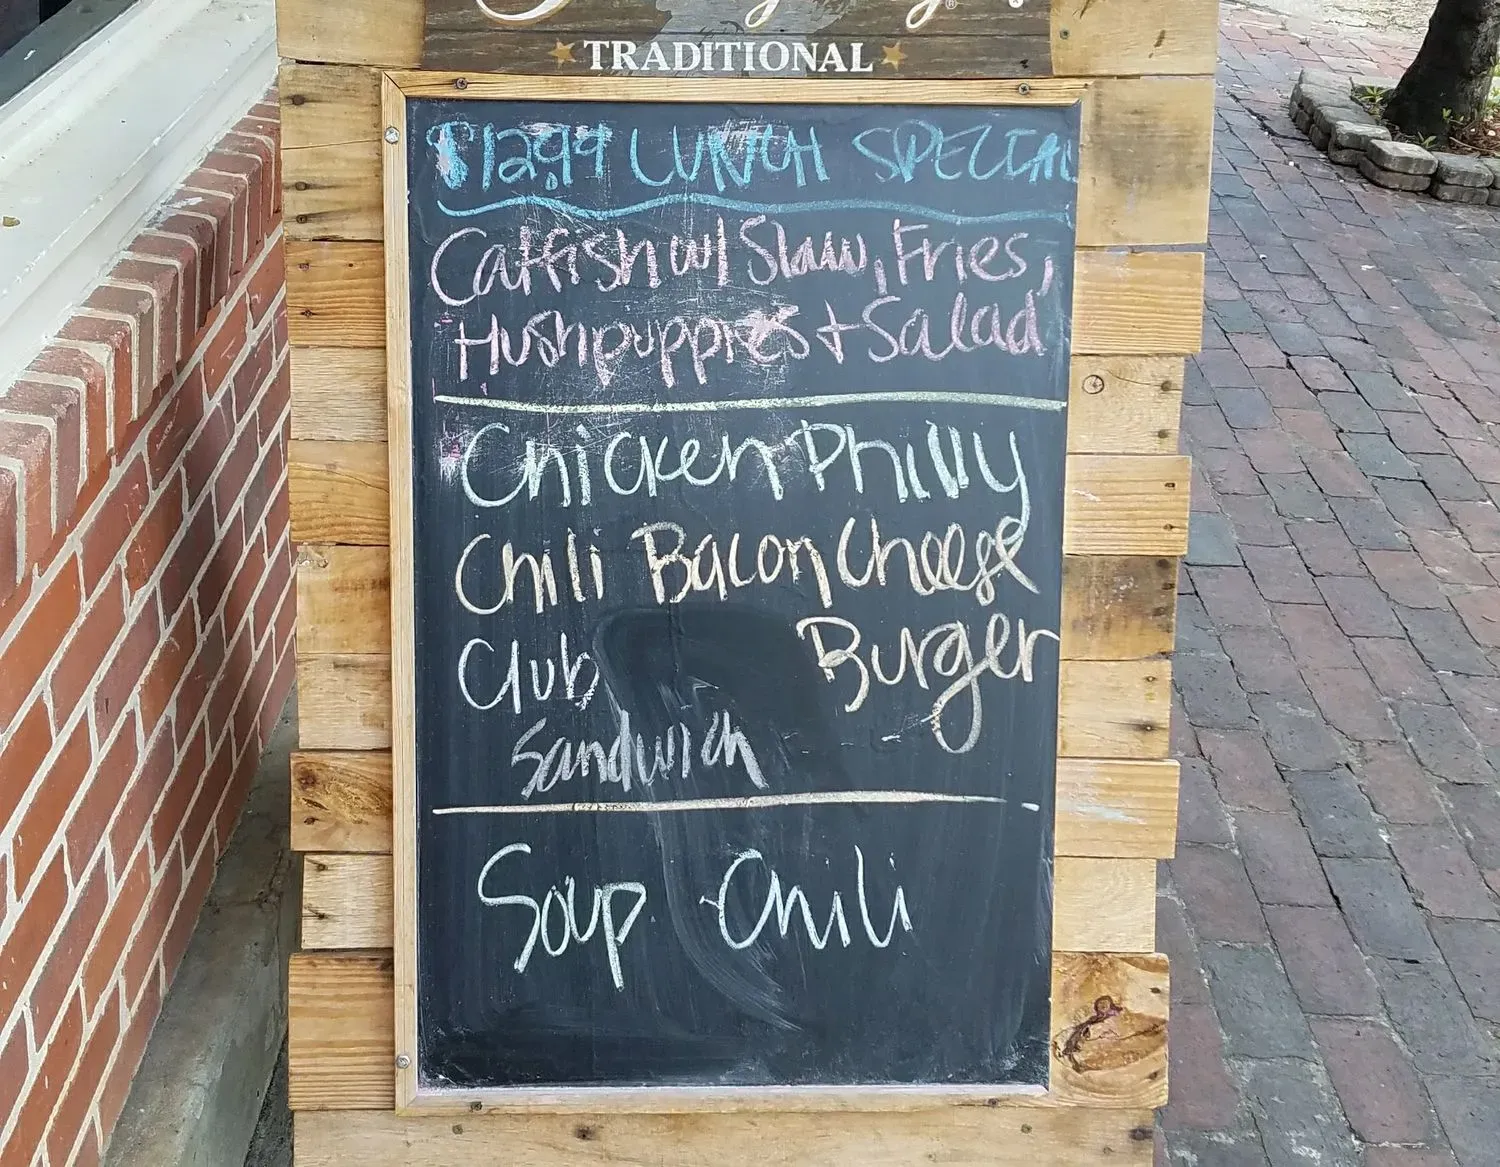 TRADITIONAL
$12.99 LUNCH SPECIAL
Catfish w/ Slaw, Fries,
Hushpuppies + Salad
Chicken Philly
Chili Bacon Cheese
Burger
Club
Sandwich
Soup - Chili